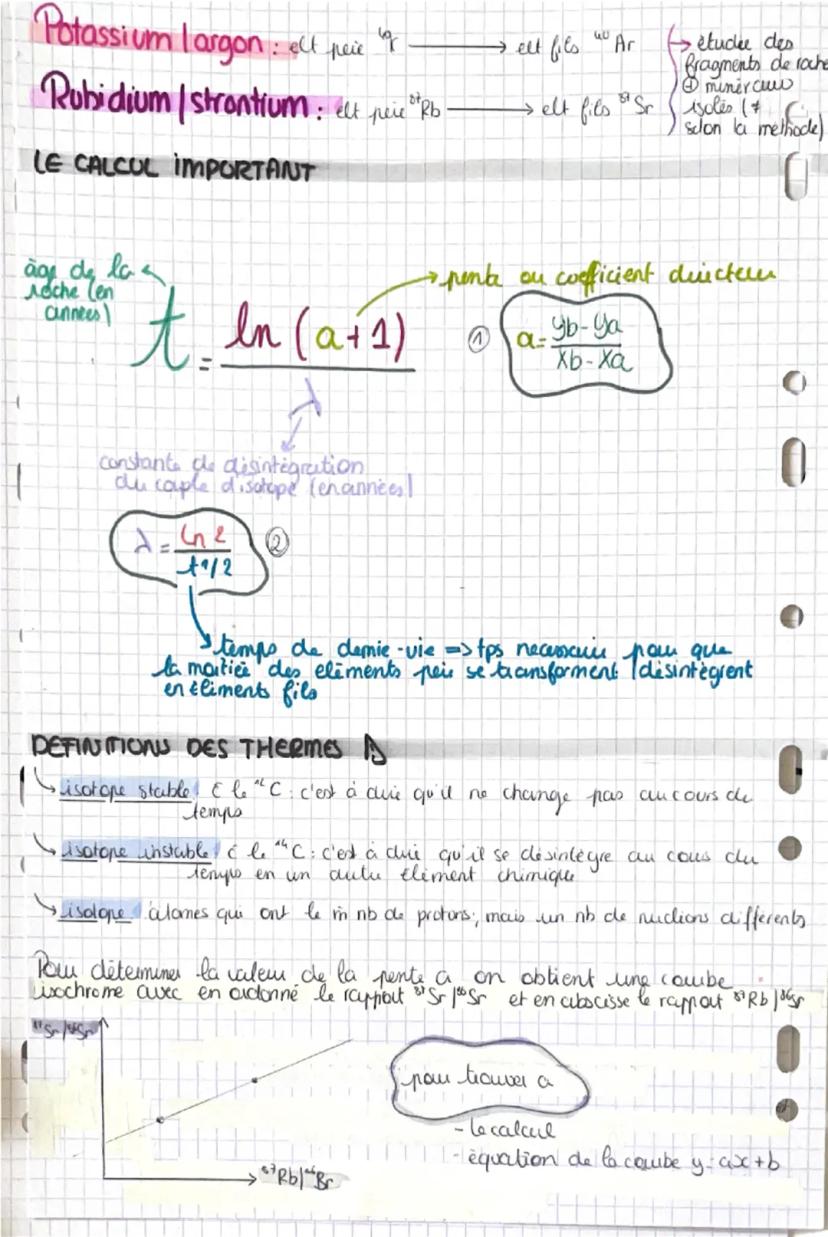 Potassium | argon : elt père ⁴⁰ → elt fils ⁴⁰Ar
→ étudie des
fragments de roche
⊕ minéraux
isolés (≠
selon la méthode)
Rubidium | strontium : elt père ⁸⁷Rb → elt fils ⁸⁷Sr
LE CALCUL IMPORTANT
âge de la
roche (en
années)
→ pente ou coefficient directeur
t = ln (a+1) / λ
① a = yb - ya / xb - xa
constante de désintégration
du couple d'isotope (en années)
λ = ln 2 / t 1/2 ②
temps de demie-vie => tps necessaire pour que
la moitiée des elements père se transforment / désintègrent
en éléments fils
DEFINITIONS DES THERMES
isotope stable : le C : c'est à dire qu'il ne change pas au cours du
temps
isotope instable : le ¹⁴C : c'est à dire qu'il se désintègre au cours du
temps en un autre élément chimique
isotope : atomes qui ont le m̂ nb de protons, mais un nb de nucléons différents
Pour déterminer la valeur de la pente a on obtient une courbe
isochrome avec en ordonné le rapport ⁸⁷Sr | ⁸⁶Sr et en abscisse le rapport ⁸⁷Rb | ⁸⁶Sr
⁸⁷Sr | ⁸⁶Sr
pour trouver a
- le calcul
- équation de la courbe y = ax + b
⁸⁷Rb | ⁸⁶Br